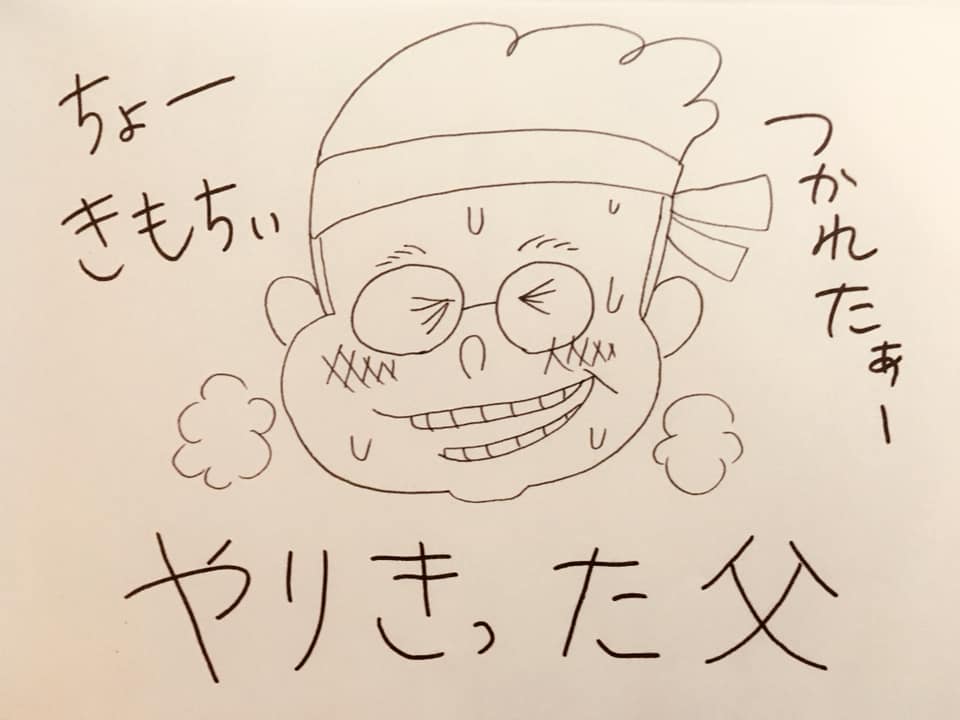 ちょー
きもちぃ
つかれたぁー
やりきった父